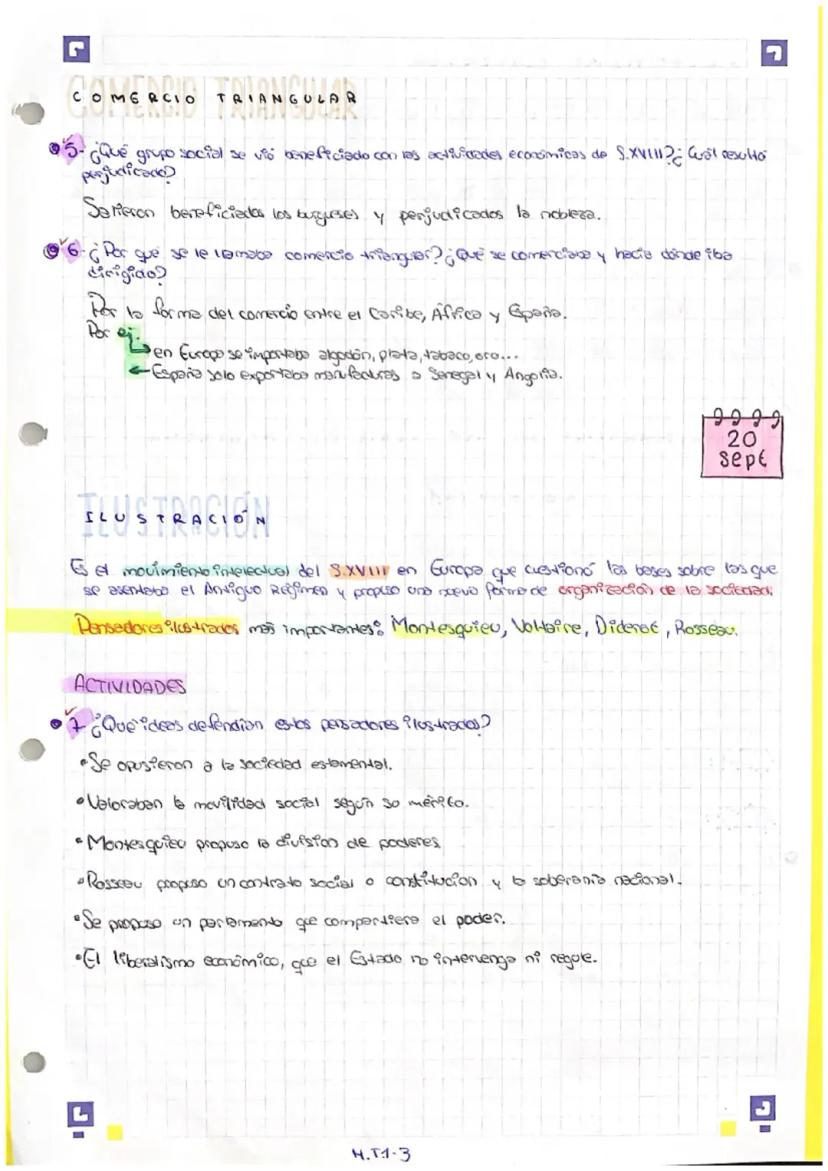 COMERCIO TRIANGULAR
5- ¿Qué grupo social se vió beneficiado con las actividades económicas de S.XVIII? ¿Cuál resultó
perjudicado?
Salieron beneficiados los burgueses y perjudicados la nobleza.
6- ¿Por qué se le llamaba comercio triangular? ¿Qué se comerciaba y hacia dónde iba
dirigido?
Por la forma del comercio entre el Caribe, África y España.
Por ej.
en Europa se importaba algodón, plata, tabaco, oro...
España solo exportaba manufacturas a Senegal y Angolia.
20
sept
ILUSTRACIÓN
Es el movimiento intelectual del S.XVIII en Europa que cuestionó las bases sobre las que
se asentaba el Antiguo Régimen y propuso una nueva forma de organización de la sociedad.
Pensadores ilustrados más importantes: Montesquieu, Voltaire, Diderot, Rosseau.
ACTIVIDADES
7 ¿Qué ideas defendían estos pensadores ilustrados?
•Se opusieron a la sociedad estamental.
•Valoraban la movilidad social según su mérito.
•Montesquieu propuso la división de poderes
•Rosseau propuso un contrato social o constitución y la soberanía nacional.
•Se propuso un parlamento que compartiera el poder.
•El liberalismo económico, que el Estado no intervenga ni regule.
H.T1-3